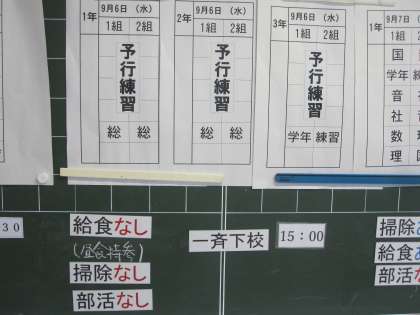 1年 9月6日 (水)
1組 2組
予行練習
総 総
2年 9月6日 (水)
1組 2組
予行練習
総 総
3年 9月6日 (水)
1組 2組
予行練習
学年 練習
1年 9月7日
1組 2組
国
学年 練
音
社
数
理 国
30
給食なし
(昼食持参)
掃除なし
部活なし
一斉下校 15:00
掃除
給食
部活